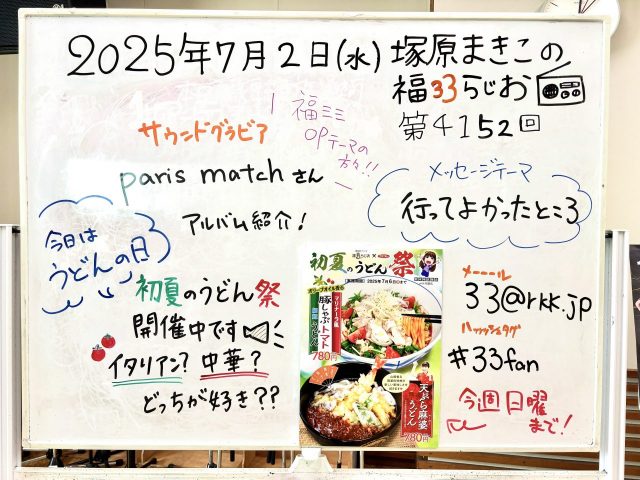 2025年7月2日(水) 塚原まきこの
福33らじお
第4152回
サウンドグラビア
福ミミ
OPテーマの
方々!!
paris matchさん
アルバム紹介!
メッセージテーマ
行ってよかったところ
今日は
うどんの日
初夏のうどん祭
開催中です
イタリアン? 中華?
どっちが好き??
初夏のうどん祭
2025年7月6日(日)まで!
豚しゃぶトマト
780円
天ぷら麻婆
うどん
780円
メーーール
33@rkk.jp
ハッシュタグ
#33fan
今週日曜
まで!